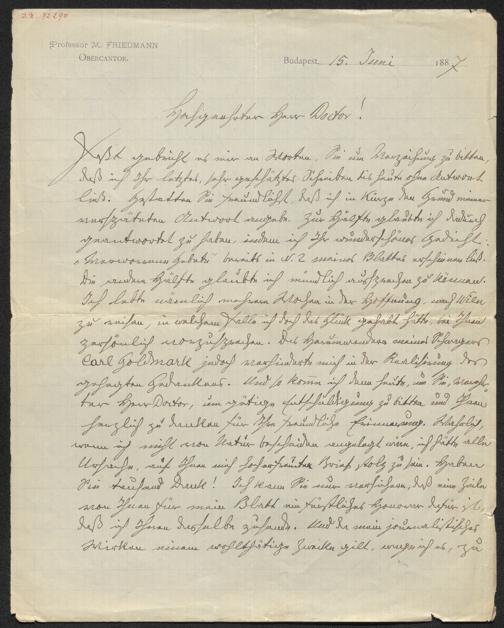 Professor M. FRIEDMANN
OBERCANTOR.
Budapest, 15. Juni 1887
Hochgeehrter Herr Doctor!
Fast gebricht es mir an Worten, Sie um Verzeihung zu bitten,
daß ich Ihr letztes, sehr geschätztes Schreiben bis heute ohne Antwort
ließ. Gestatten Sie freundlichst, daß ich in Kürze den Grund meiner
verspäteten Antwort angebe. Zur Hälfte glaubte ich dadurch
geantwortet zu haben, indem ich Ihr wunderschönes Gedicht:
Gebet" bereits in N. 2 meines Blattes erscheinen ließ.
Die andere Hälfte glaubte ich mündlich aussprechen zu können.
Ich lebte nämlich mehrere Wochen in der Hoffnung, nach Wien
zu reisen, in welchem Falle ich doch das Glück gehabt hätte, bei Ihnen
persönlich vorzusprechen. Die meines Schwagers
Carl Goldmark jedoch verhinderte mich in der Realisirung des
gehegten Gedankens. Und so komme ich denn heute, um Sie,
Herr Doctor, um gütige Entschuldigung zu bitten, und Ihnen
herzlich zu danken für Ihre freundliche Erinnerung. Wahrlich,
wenn ich nicht von Natur bescheiden angelegt wäre, ich hätte alle
Ursache, auf Ihren mich hocherfreuenden Brief stolz zu sein. Haben
Sie tausend Dank! Ich kann Sie nur versichern, daß eine Zeile
von Ihnen für mein Blatt ein fürstliches Honorar dafür ist,
daß ich Ihnen dasselbe zusende. Und da mein journalistisches
Wirken einem wohlthätigen Zwecke gilt, wage ich es, zu